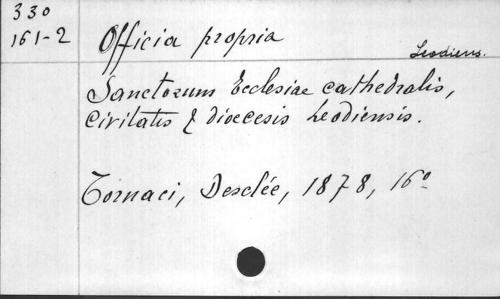 330
161-2
Officia propria
Leodiens.
Sanctorum Ecclesiae cathedralis,
Civitatis & dioecesis Leodiensis.
Tornaci, Desclée, 1878, 16º